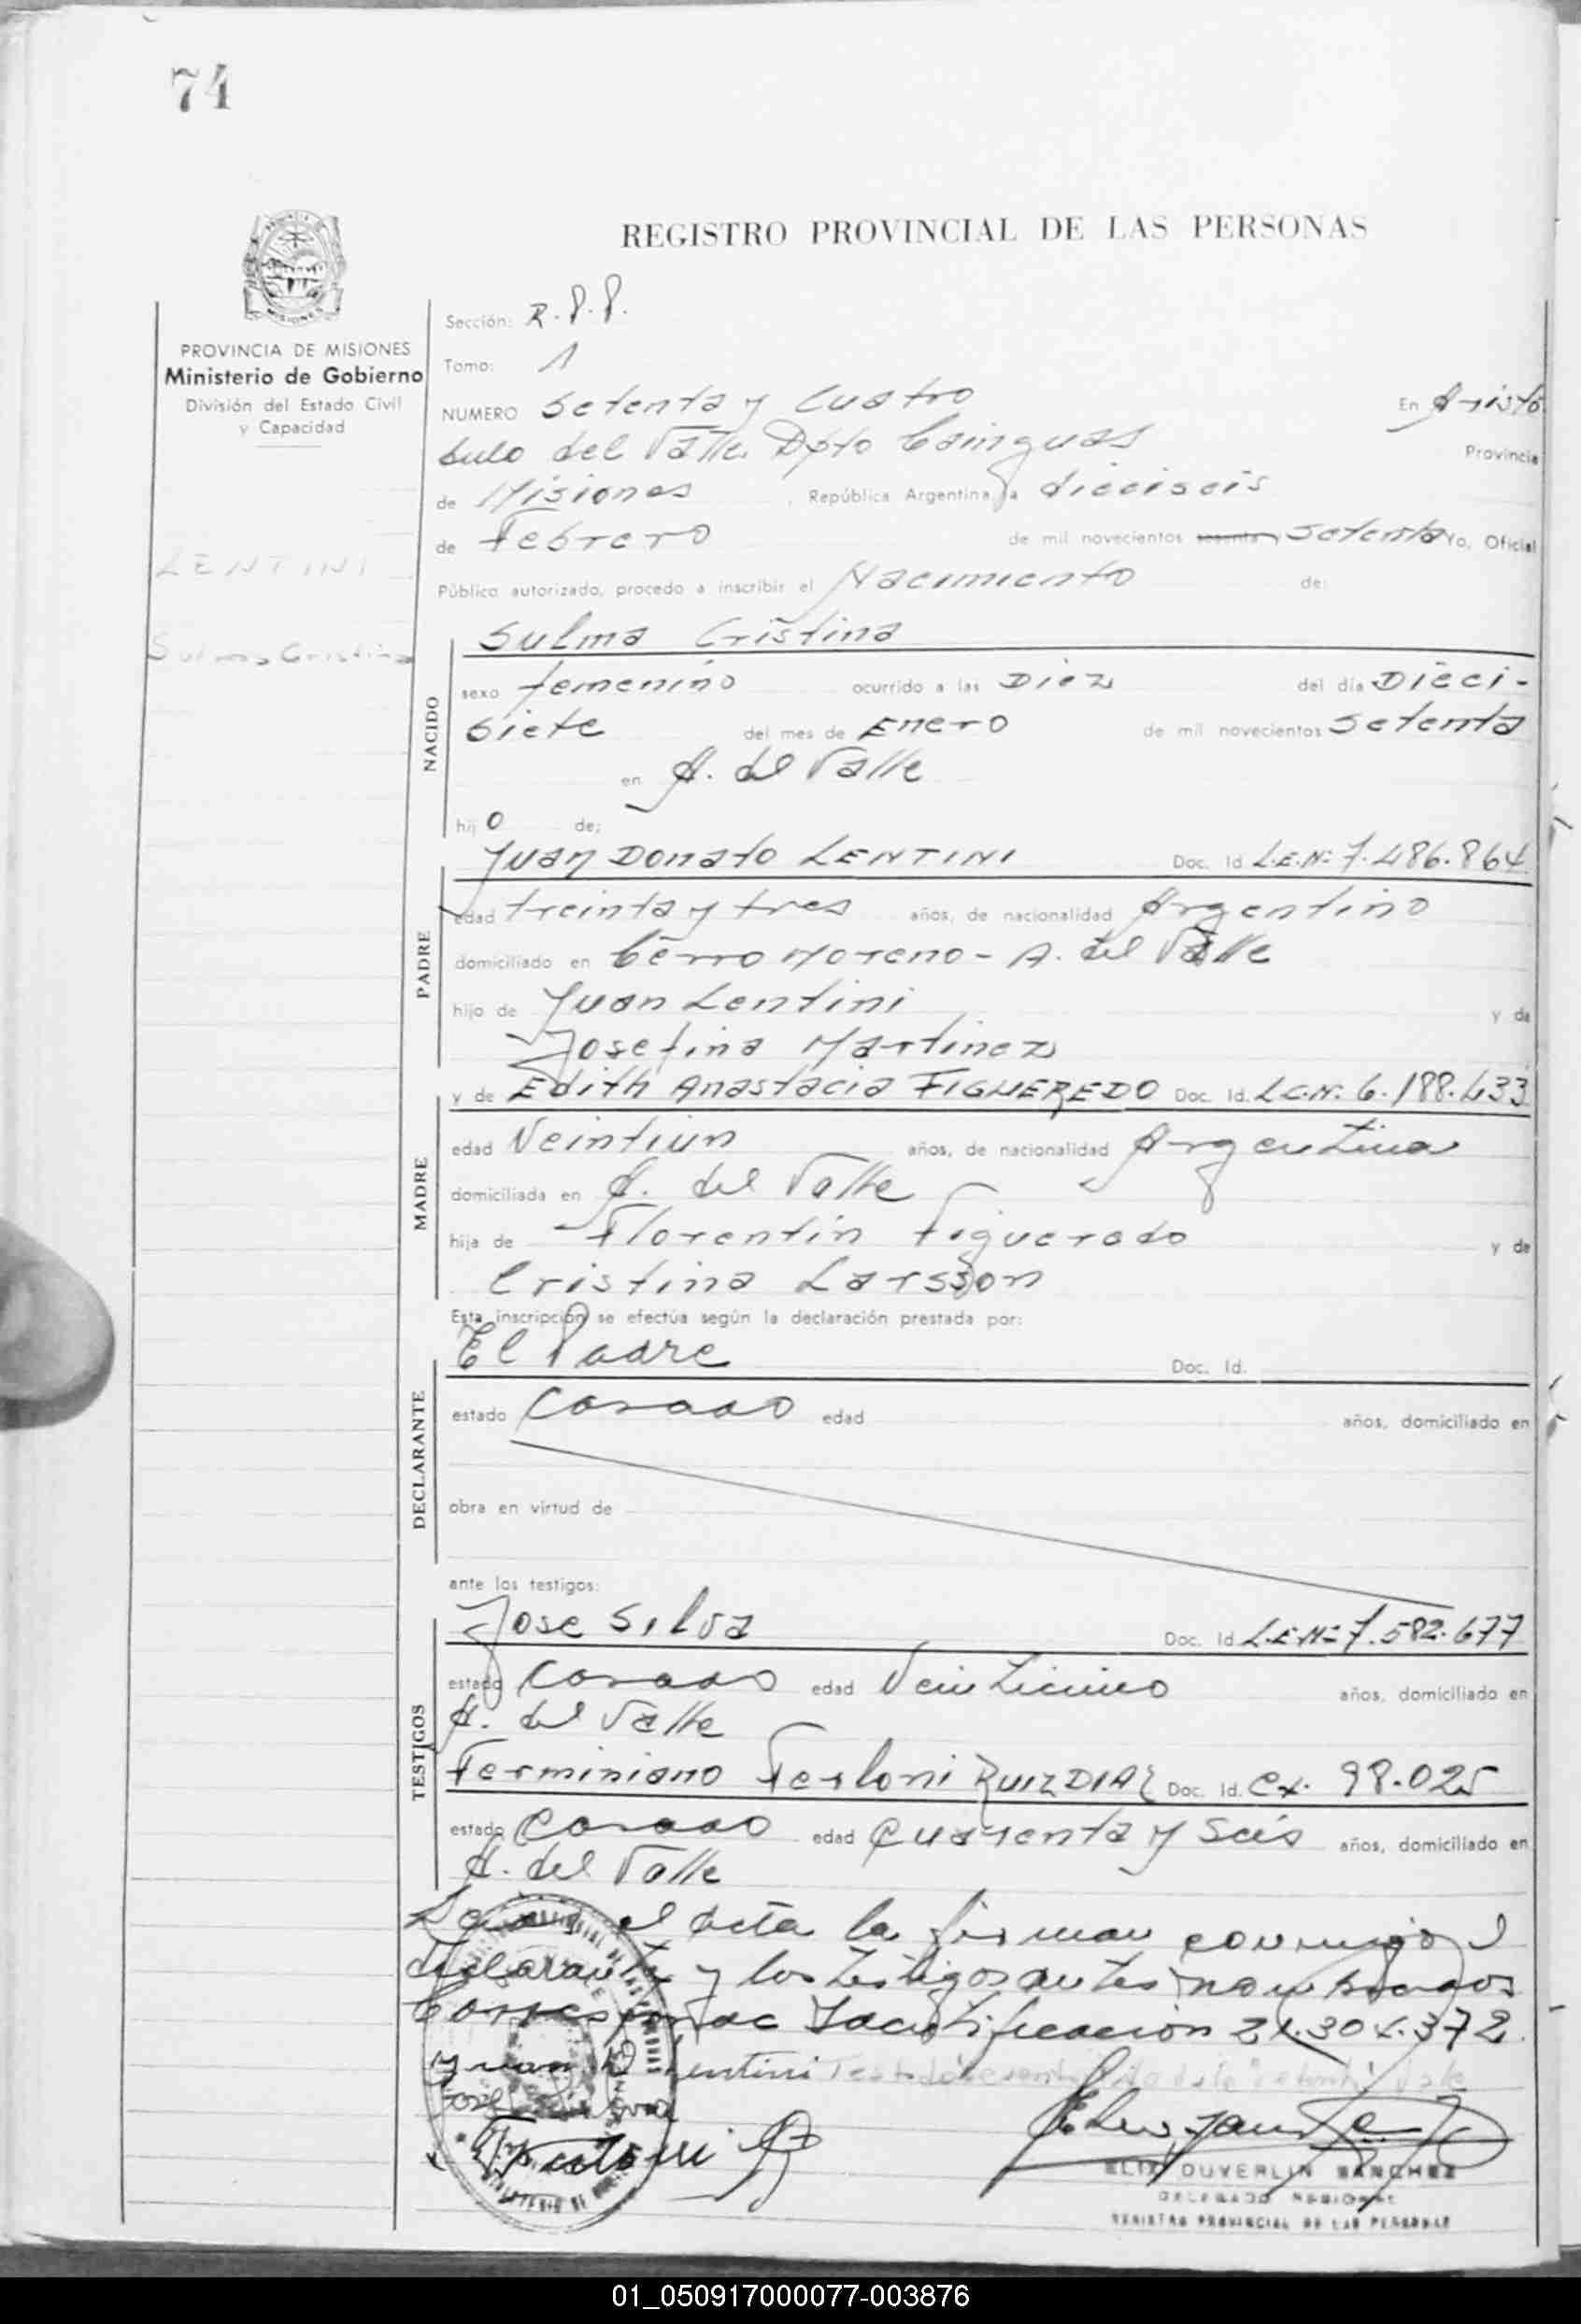 74
REGISTRO PROVINCIAL DE LAS PERSONAS
MISIONES
PROVINCIA DE MISIONES
Ministerio de Gobierno
División del Estado Civil
y Capacidad
LENTINI
Sulma Cristina
Sección: R.P.P.
Tomo: 1
NUMERO Setenta y Cuatro En Aristó
bulo del Valle Dpto Cainguas Provincia
de Misiones, República Argentina, a dieciseis
de Febrero de mil novecientos sesenta y Setenta Yo, Oficial
Público autorizado, procedo a inscribir el Nacimiento de:
NACIDO
Sulma Cristina
sexo femenino ocurrido a las Diez del día Dieci-
siete del mes de Enero de mil novecientos Setenta
en A. del Valle
hij o de;
PADRE
Juan Donato LENTINI Doc. Id L.E.Nº 7.486.864
edad treinta y tres años, de nacionalidad Argentino
domiciliado en Cerro Moreno - A. del Valle
hijo de Juan Lentini y de
Josefina Martinez
MADRE
y de Edith Anastacia FIGUEREDO Doc. Id. L.C.Nº 6.188.433
edad Veintiun años, de nacionalidad Argentina
domiciliada en A. del Valle
hija de Florentin Figueredo y de
Cristina Larsson
Esta inscripción se efectúa según la declaración prestada por:
DECLARANTE
El Padre Doc. Id.
estado Casado edad años, domiciliado en
obra en virtud de
ante los testigos:
TESTIGOS
Jose Silva Doc. Id L.E.Nº 7.582.677
estado Casado edad Veinticinco años, domiciliado en
A. del Valle
Ferminiano Ferloni RUIZ DIAZ Doc. Id. Ex. 98.025
estado Casado edad Cuarenta y Seis años, domiciliado en
A. del Valle
el acta la firman conmigo el
declarante y los testigos antes nombrados
Corresponde Identificacion 21.304.372.
Juan D Lentini
Jose Silva
ELIX DUVERLIN SANCHEZ
DELEGADO REGIONAL
REGISTRO PROVINCIAL DE LAS PERSONAS
01_050917000077-003876